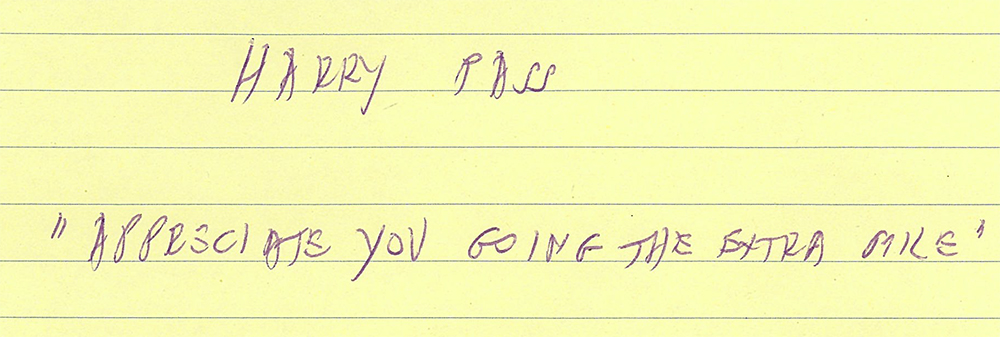 HARRY PASS
"APPRECIATE YOU GOING THE EXTRA MILE'